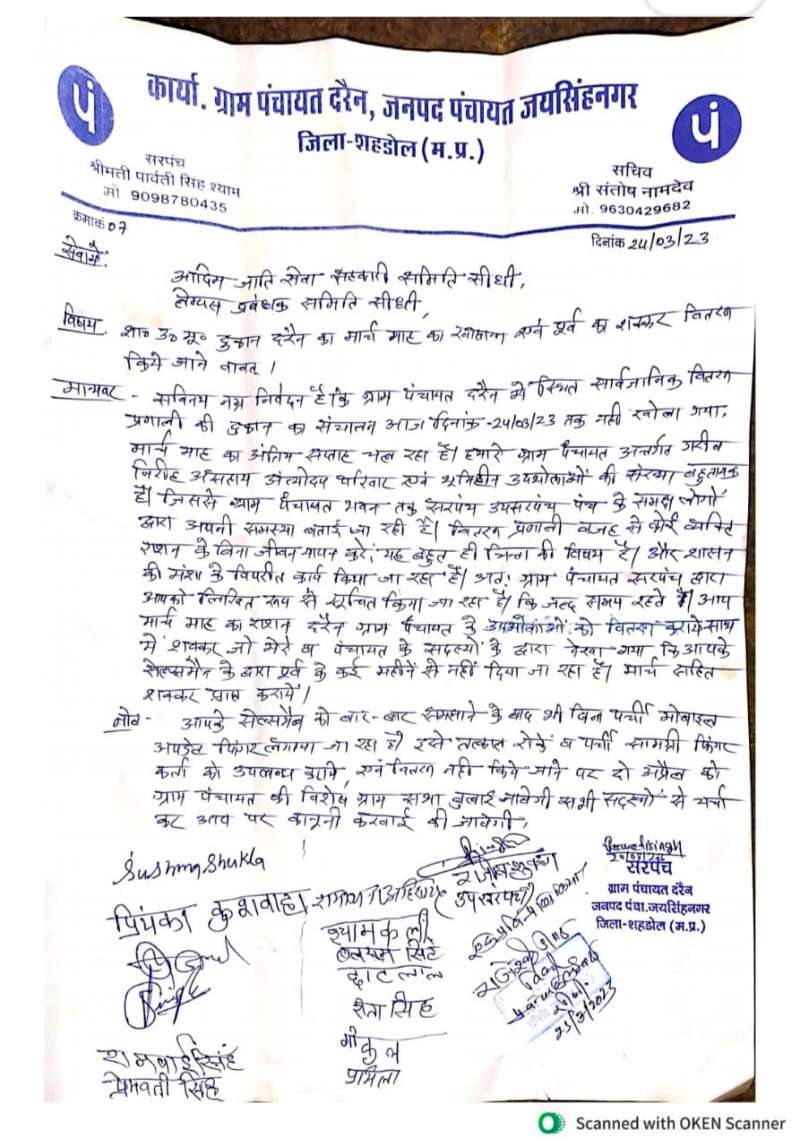 पं
कार्या. ग्राम पंचायत दरैन, जनपद पंचायत जयसिंहनगर
जिला-शहडोल (म.प्र.)
पं
सरपंच
श्रीमती पार्वती सिंह श्याम
मो 9098780435
सचिव
श्री संतोष नामदेव
मो. 9630429682
क्रमांक 07
दिनांक 24/03/23
सेवामें,
आदिम जाति सेवा सहकारी समिति सीधी,
प्रबंधक समिति सीधी,
विषय. शा० उ० मू० दुकान दरैन का मार्च माह का एवं पूर्व का शक्कर वितरण
किये जाने बावत् ।
मान्यवर - सविनय नम्र निवेदन है कि ग्राम पंचायत दरैन में स्थित सार्वजानिक वितरण
प्रणाली की दुकान का संचालन आज दिनांक -24/03/23 तक नही खोला गया,
मार्च माह का अंतिम सप्ताह चल रहा है। हमारे ग्राम पंचायत अन्तर्गत गरीब
असहाय अंत्योदय परिवार एवं भूमिहीन उपभोक्ताओं की संख्या
है। जिससे ग्राम पंचायत भवन तक सरपंच उपसरपंच पंच के समक्ष लोगों
द्वारा अपनी समस्या बताई जा रही है। वितरण प्रणाली वजह से कोई व्यक्ति
राशन के बिना जीवन यापन करे, यह बहुत ही चिन्ता की विषय है। और शासन
की मंशा के विपरीत कार्य किया जा रहा है। अतः ग्राम पंचायत सरपंच द्वारा
आपको लिखित रूप से सूचित किया जा रहा है। कि जल्द समय रहते आप
मार्च माह का राशन दरैन ग्राम पंचायत के उपभोक्ताओं को वितरण कराये साथ
में शक्कर जो मेरे व पंचायत के सदस्यो के द्वारा देखा गया कि आपके
सेल्समैन के द्वारा पूर्व के कई महीनें से नहीं दिया जा रहा है। मार्च सहित
शक्कर प्राप्त करायें।
नोट - आपके सेल्समैन को बार-बार समझाने के बाद भी बिना पर्ची मोबाइल
अपडेट फिंगर लगाया जा रहा है। इसे तत्काल रोकें व पर्ची सामग्री फिंगर
कर्ता को उपलब्ध करावे, एवं वितरण नही किये जाने पर दो अप्रैल को
ग्राम पंचायत की विशेष ग्राम सभा बुलाई जावेगी सभी सदस्यों से चर्चा
कर आप पर कानूनी करवाई की जावेगी,
Sushma Shukla
प्रियंका कुशवाहा
(उपसरपंच)
सरपंच
ग्राम पंचायत दरैन
जनपद पंचा.जयसिंहनगर
जिला-शहडोल (म.प्र.)
श्यामकली
छोटेलाल
सिंह
गोकुल
प्रमिला
रामबाई सिंह
प्रेमवती सिंह
25/3/2023
Scanned with OKEN Scanner